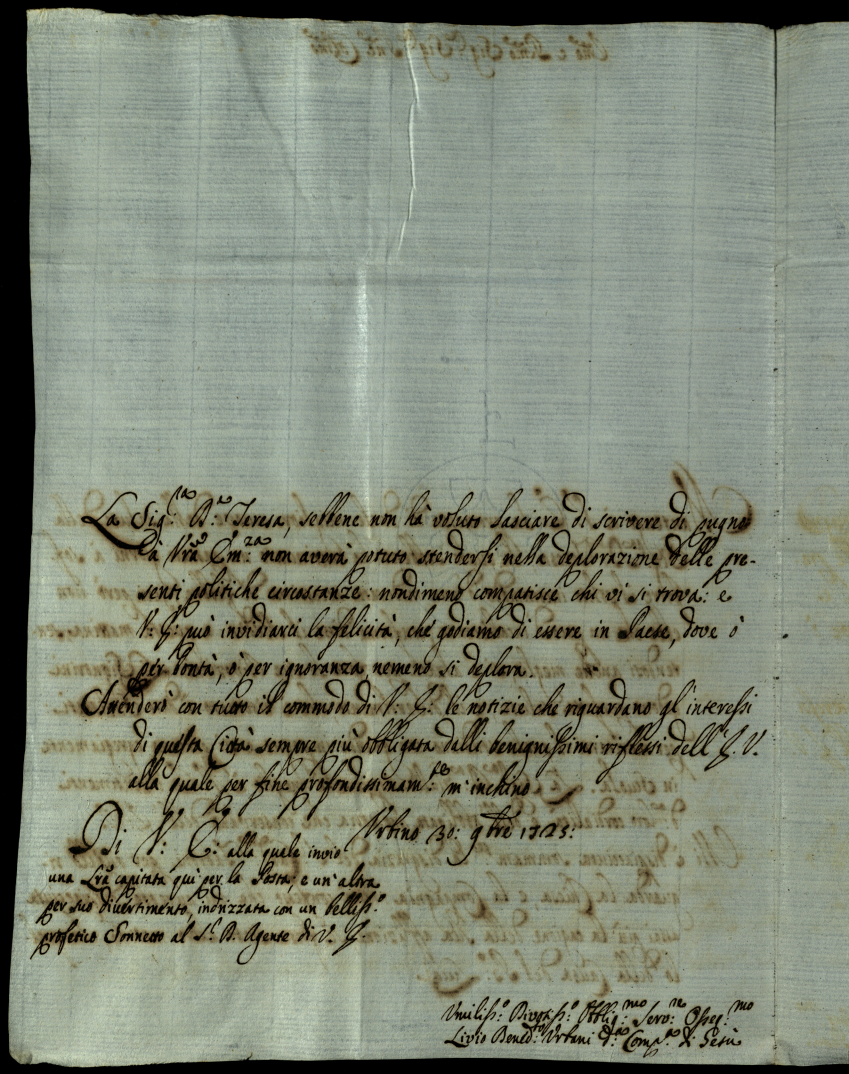 La Sig.ra D.a Teresa, sebbene non hà voluto lasciare di scrivere di pugno
à Vrã Em:za non averà potuto stendersi nella deplorazione delle pre-
senti politiche circostanze: nondimeno compatisce chi vi si trova: e
V: E: può invidiarci la felicità, che godiamo di essere in Paese, dove ò
per bontà, ò per ignoranza nemeno si deplora.
Attenderò con tutto il commodo di V: E: le notizie che riguardano gl'interessi
di questa Città sempre più obbligata dalli benignissimi riflessi dell'E. V.
alla quale per fine profondissimam:te m'inchino
Di V: E: alla quale invio Urbino 30: 9tre 1725:
una Lrã capitata quì per la Posta; e un'altra
per suo divertimento, indrizzata con un belliss:o
profetico Sonnetto al S.r D. Agente di V. E.
Umiliss:o Divotiss:o Obblig:mo Serv:re Osseq:mo
Livio Bened:o Urbani d:a Comp:a di Gesù